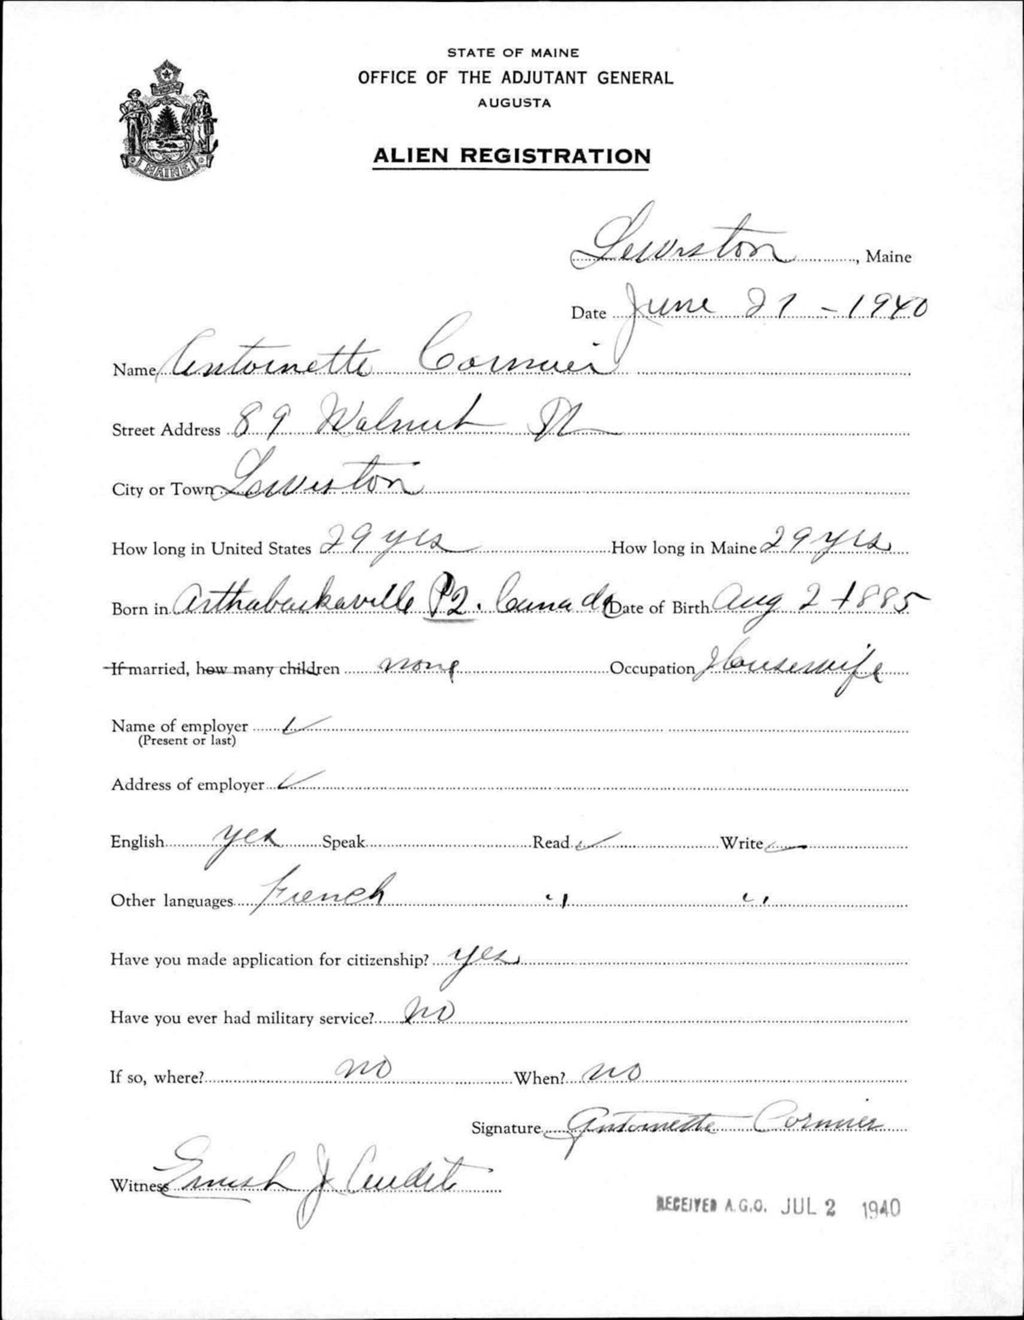 STATE OF MAINE
OFFICE OF THE ADJUTANT GENERAL
AUGUSTA
ALIEN REGISTRATION
MAINE
Lewiston, Maine
Date June 27 - 1940
Name Antoinette Cormier
Street Address 89 Walnut St
City or Town Lewiston
How long in United States 29 yrs How long in Maine 29 yrs
Born in Arthabaskaville P2. Canada Date of Birth Aug 2 1885
If married, how many children none Occupation Housewife
Name of employer ✓
(Present or last)
Address of employer ✓
English yes Speak Read ✓ Write ✓
Other languages French " "
Have you made application for citizenship? yes
Have you ever had military service? no
If so, where? no When? no
Signature Antoinette Cormier
Witness J Audet
RECEIVED A.G.O. JUL 2 1940